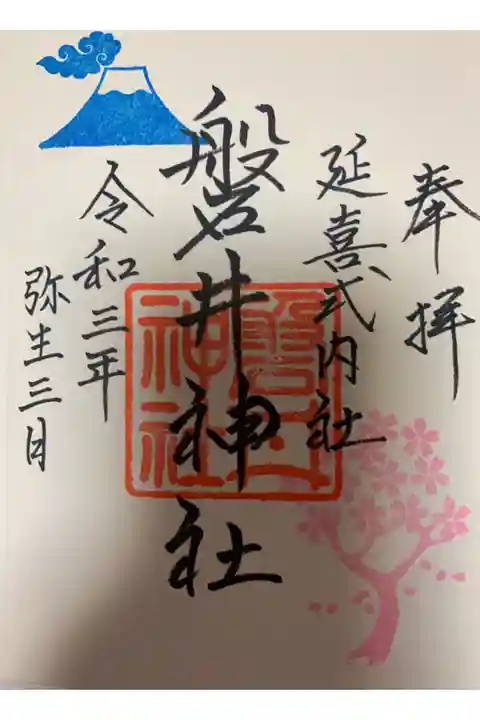 奉拝
延喜式内社
磐井神社
磐井神社
令和三年
弥生三日